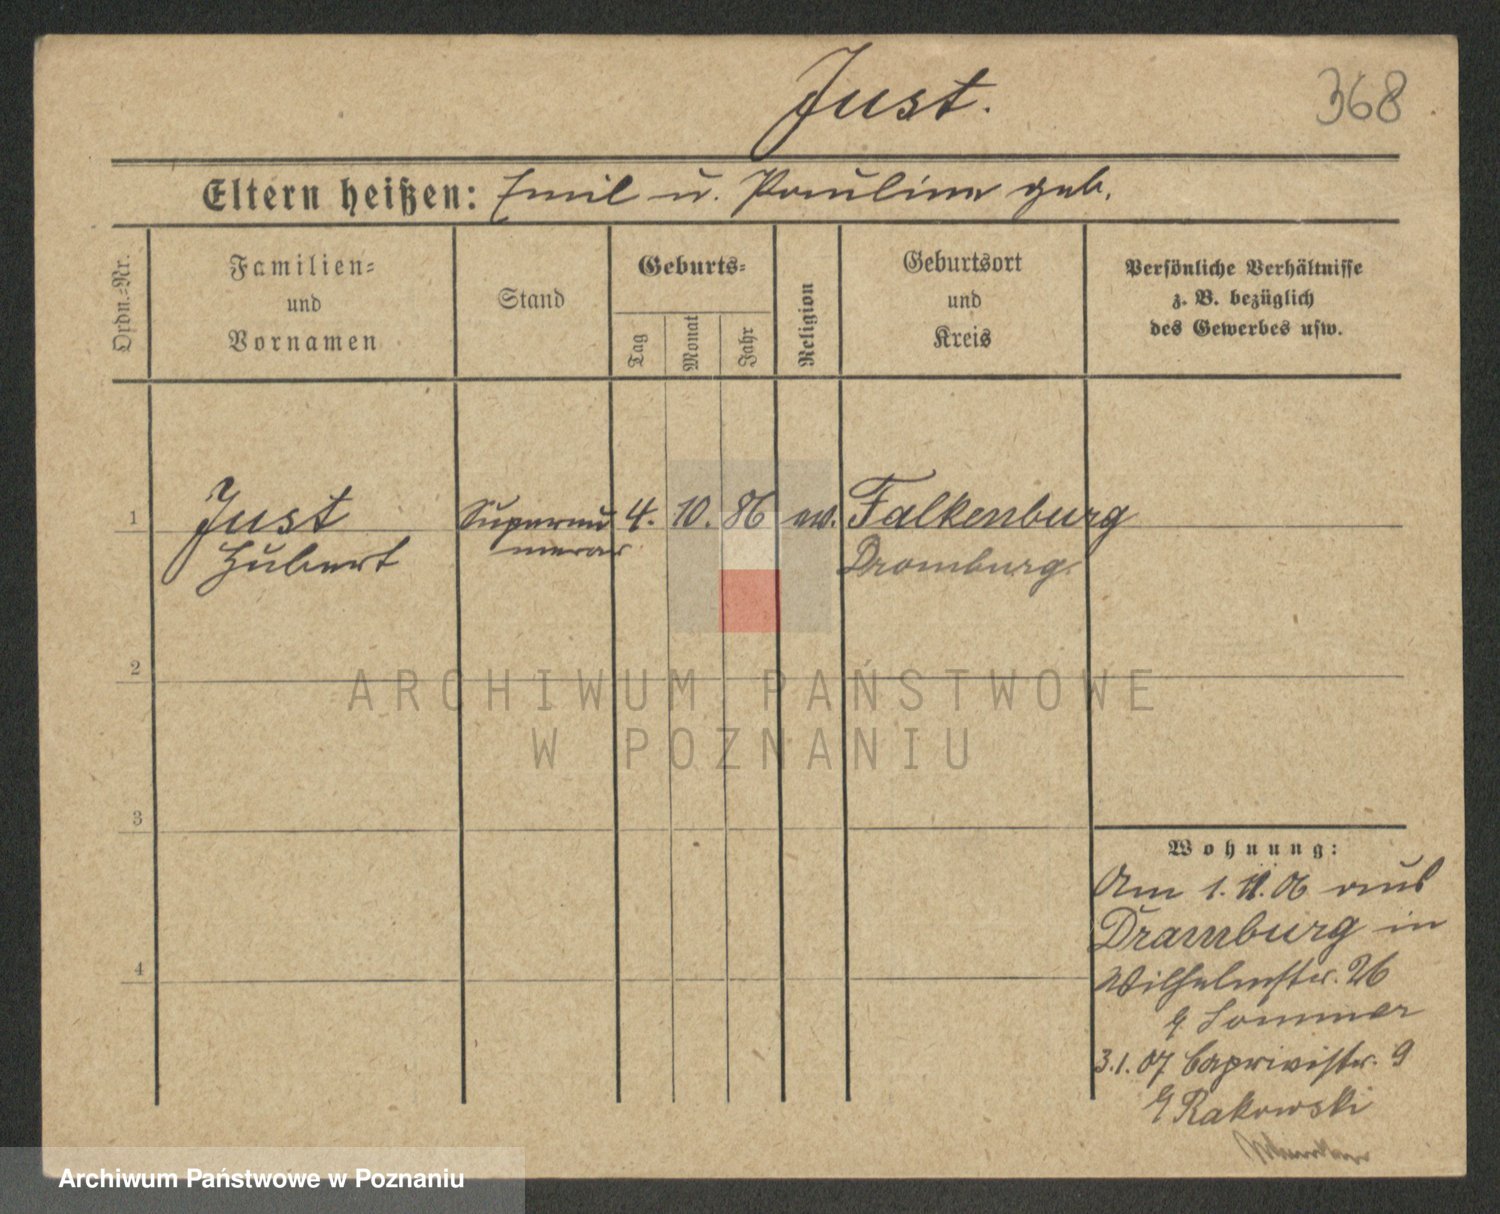 Just.
368
Eltern heißen: Emil u. Pauline geb.
Ordn.-Nr.
Familien-
und
Vornamen
Stand
Geburts-
Tag
Monat
Jahr
Religion
Geburtsort
und
Kreis
Persönliche Verhältnisse
z. B. bezüglich
des Gewerbes usw.
1 Just Supernu 4. 10. 86 ev. Falkenburg
Hubert merar Dramburg.
2
ARCHIWUM PAŃSTWOWE
W POZNANIU
3
Wohnung:
Am 1. 11. 06 aus
Dramburg in
4
Wilhelmstr. 26
Sommer
3.1.07 Caprivistr. 9
Rakowski
Archiwum Państwowe w Poznaniu